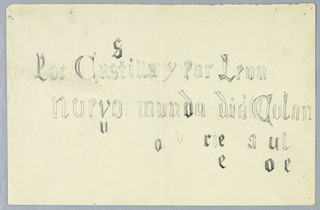 s
Por Castilla y Por Leon
nuevo mundo dió Colon
u o v rie a ul
e o e